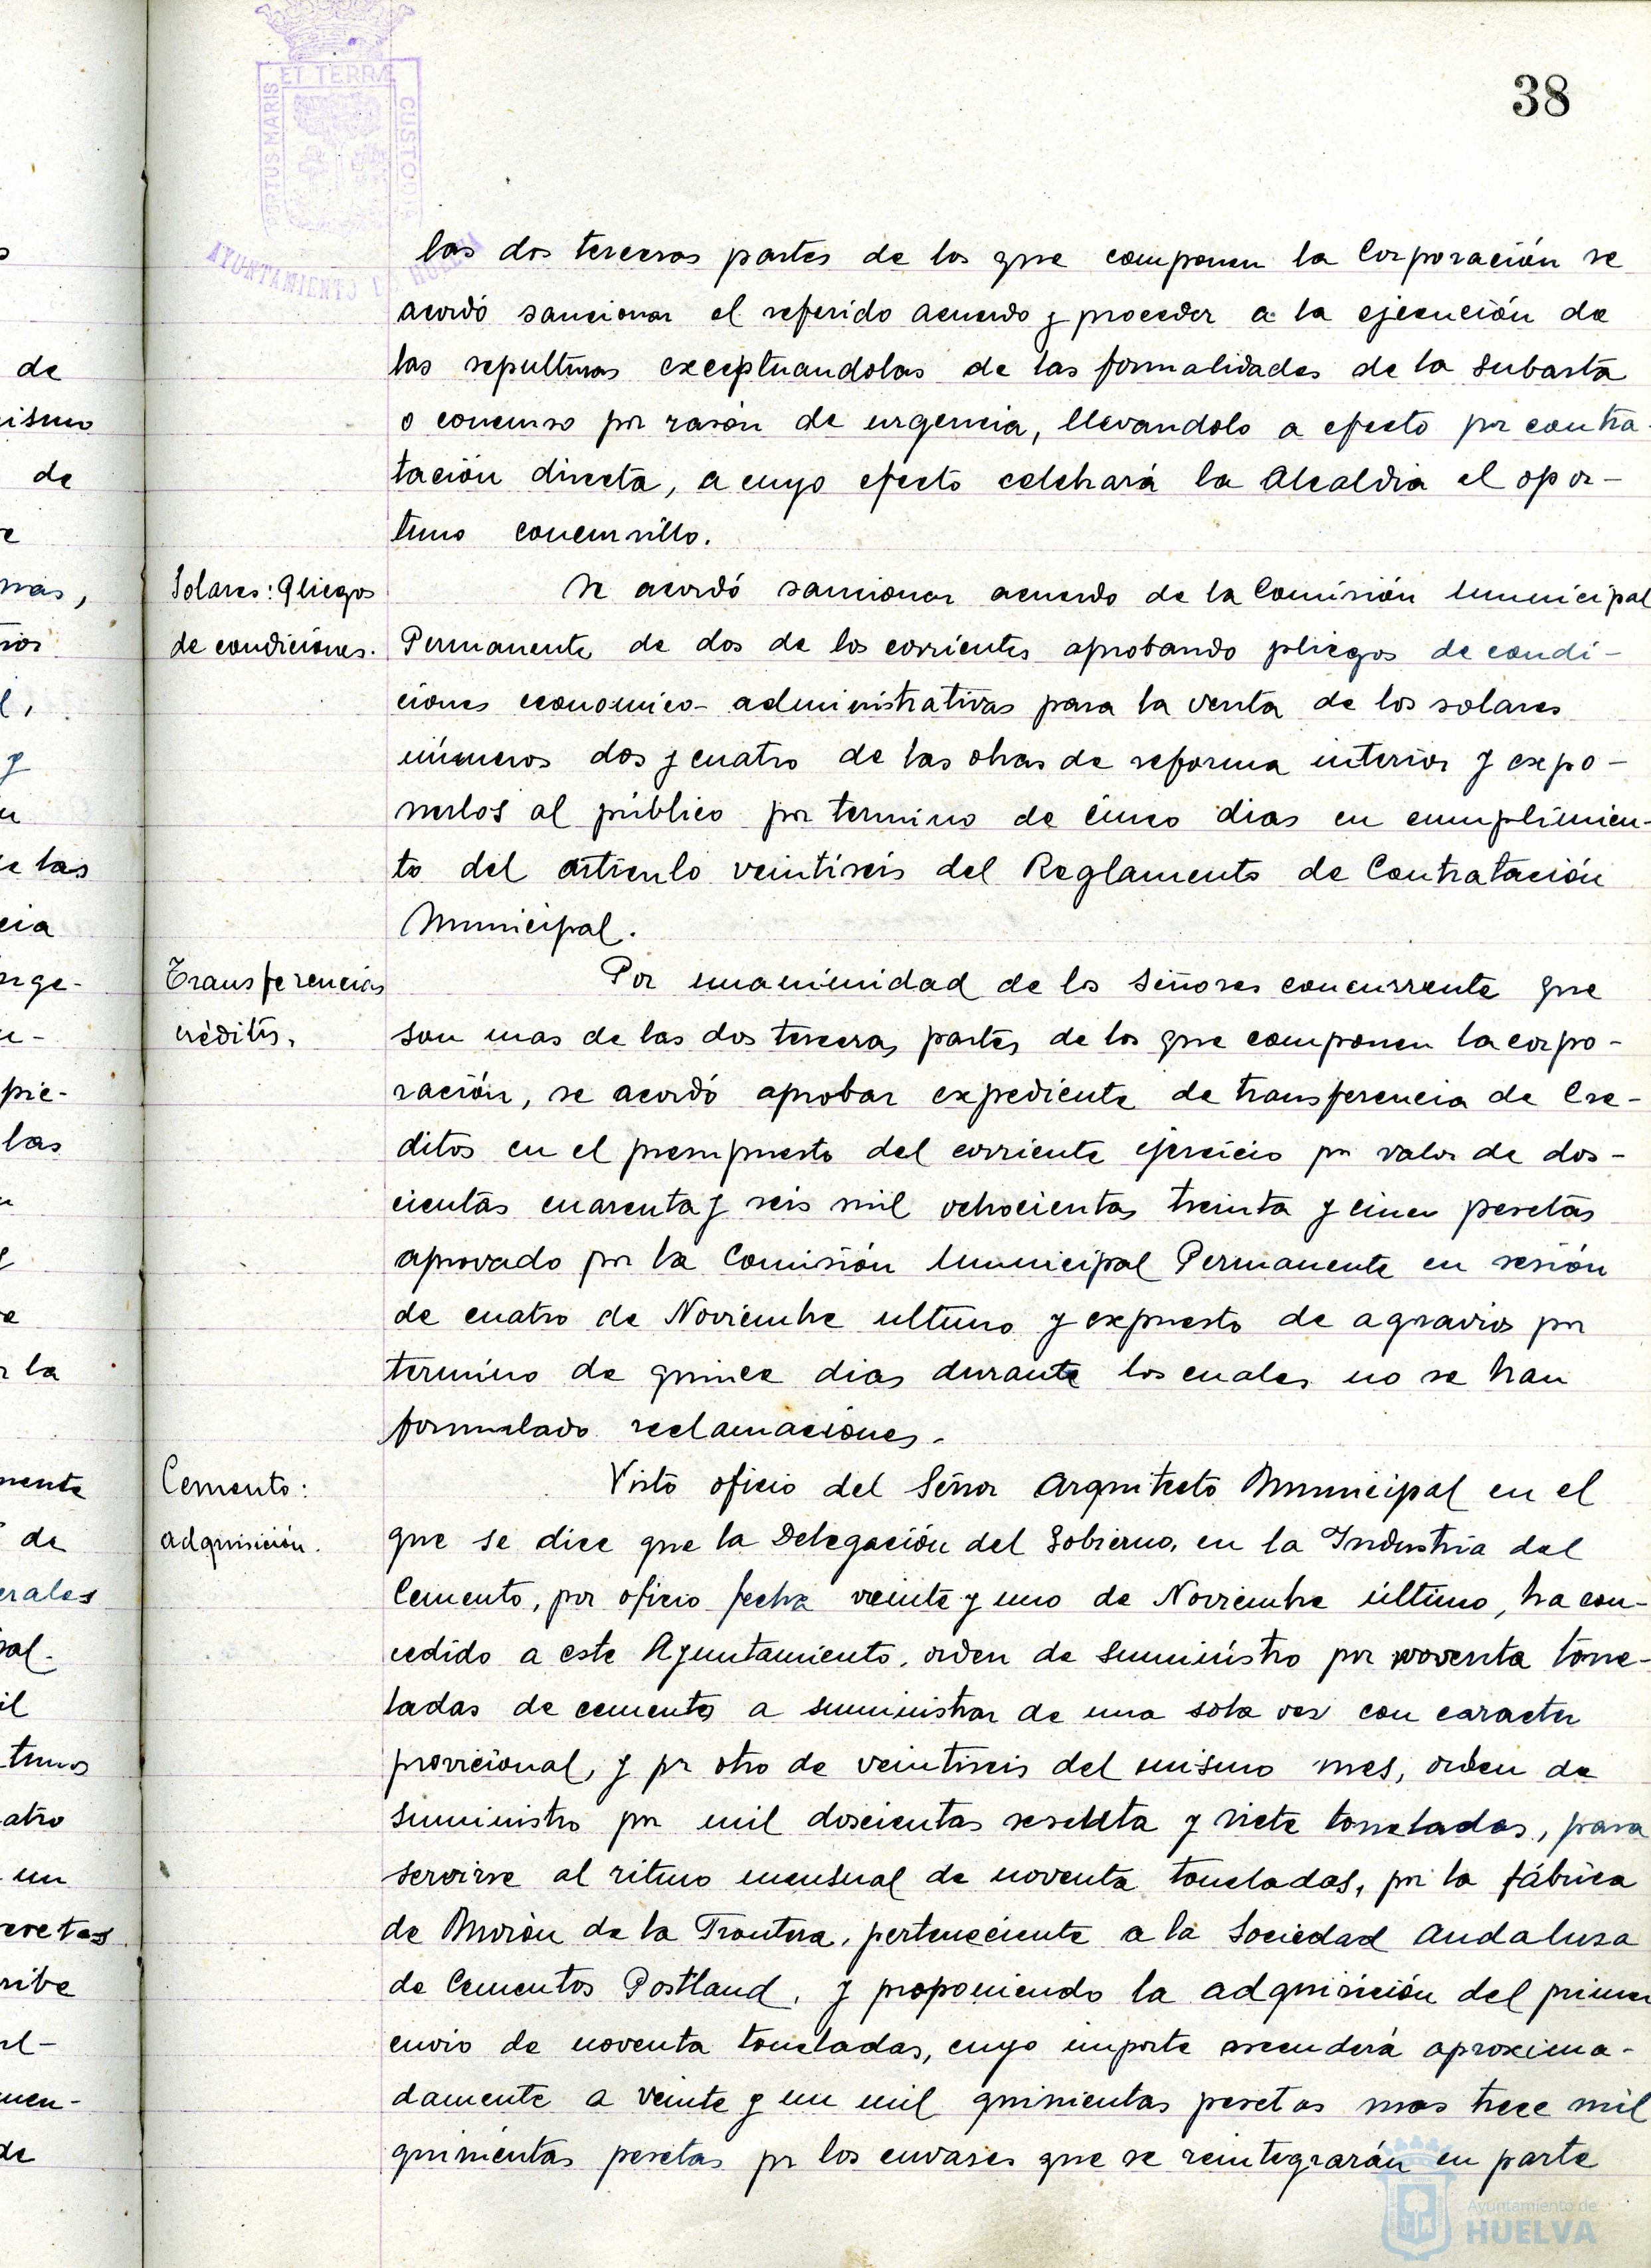 38
PORTUS MARIS ET TERRÆ CUSTODIA
AYUNTAMIENTO DE HUELVA
las dos terceras partes de los que componen la Corporación se
acordó sancionar el referido acuerdo y proceder a la ejecución de
las sepulturas exceptuandolas de las formalidades de la subasta
o concurso por rasón de urgencia, llevandolo a efecto por contra-
tación directa, a cuyo efecto celebrará la Alcaldia el opor-
tuno concursillo.
Solares: Pliegos
de condiciones.
Se acordó sancionar acuerdo de la Comisión Municipal
Permanente de dos de los corrientes aprobando pliegos de condi-
ciones economico-administrativas para la venta de los solares
números dos y cuatro de las obras de reforma interior y expo-
nerlos al público por termino de cinco dias en cumplimien-
to del artículo veintiseis del Reglamento de Contratación
Municipal.
Transferencias
créditos.
Por unanimidad de los Señores concurrente que
son mas de las dos terceras partes de los que componen la corpo-
ración, se acordó aprobar expediente de transferencia de Cre-
ditos en el presupuesto del corriente ejercicio por valor de dos-
cientas cuarenta y seis mil ochocientas treinta y cinco pesetas
aprovado por la Comisión Municipal Permanente en sesión
de cuatro de Noviembre ultimo y expuesto de agravios por
termino de quince dias durante los cuales no se han
formulado reclamaciones.
Cemento:
adquisición.
Visto oficio del Señor Arquitecto Municipal en el
que se dice que la Delegación del Gobierno, en la Industria del
Cemento, por oficio fecha veinte y uno de Noviembre último, ha con-
cedido a este Ayuntamiento, orden de suministro por noventa tone-
ladas de cemento a suministrar de una sola vez con caracter
provicional, y por otro de veintiseis del mismo mes, orden de
suministro por mil doscientas sesenta y siete toneladas, para
servirse al ritmo mensual de noventa toneladas, por la fábrica
de Morón de la Frontera, perteneciente a la Sociedad Andaluza
de Cementos Portland, y proponiendo la adquisición del primer
envio de noventa toneladas, cuyo importe ascenderá aproxima-
damente a veinte y un mil quinientas pesetas mas trece mil
quinientas pesetas por los envases que se reintegrarán en parte
Ayuntamiento de
HUELVA